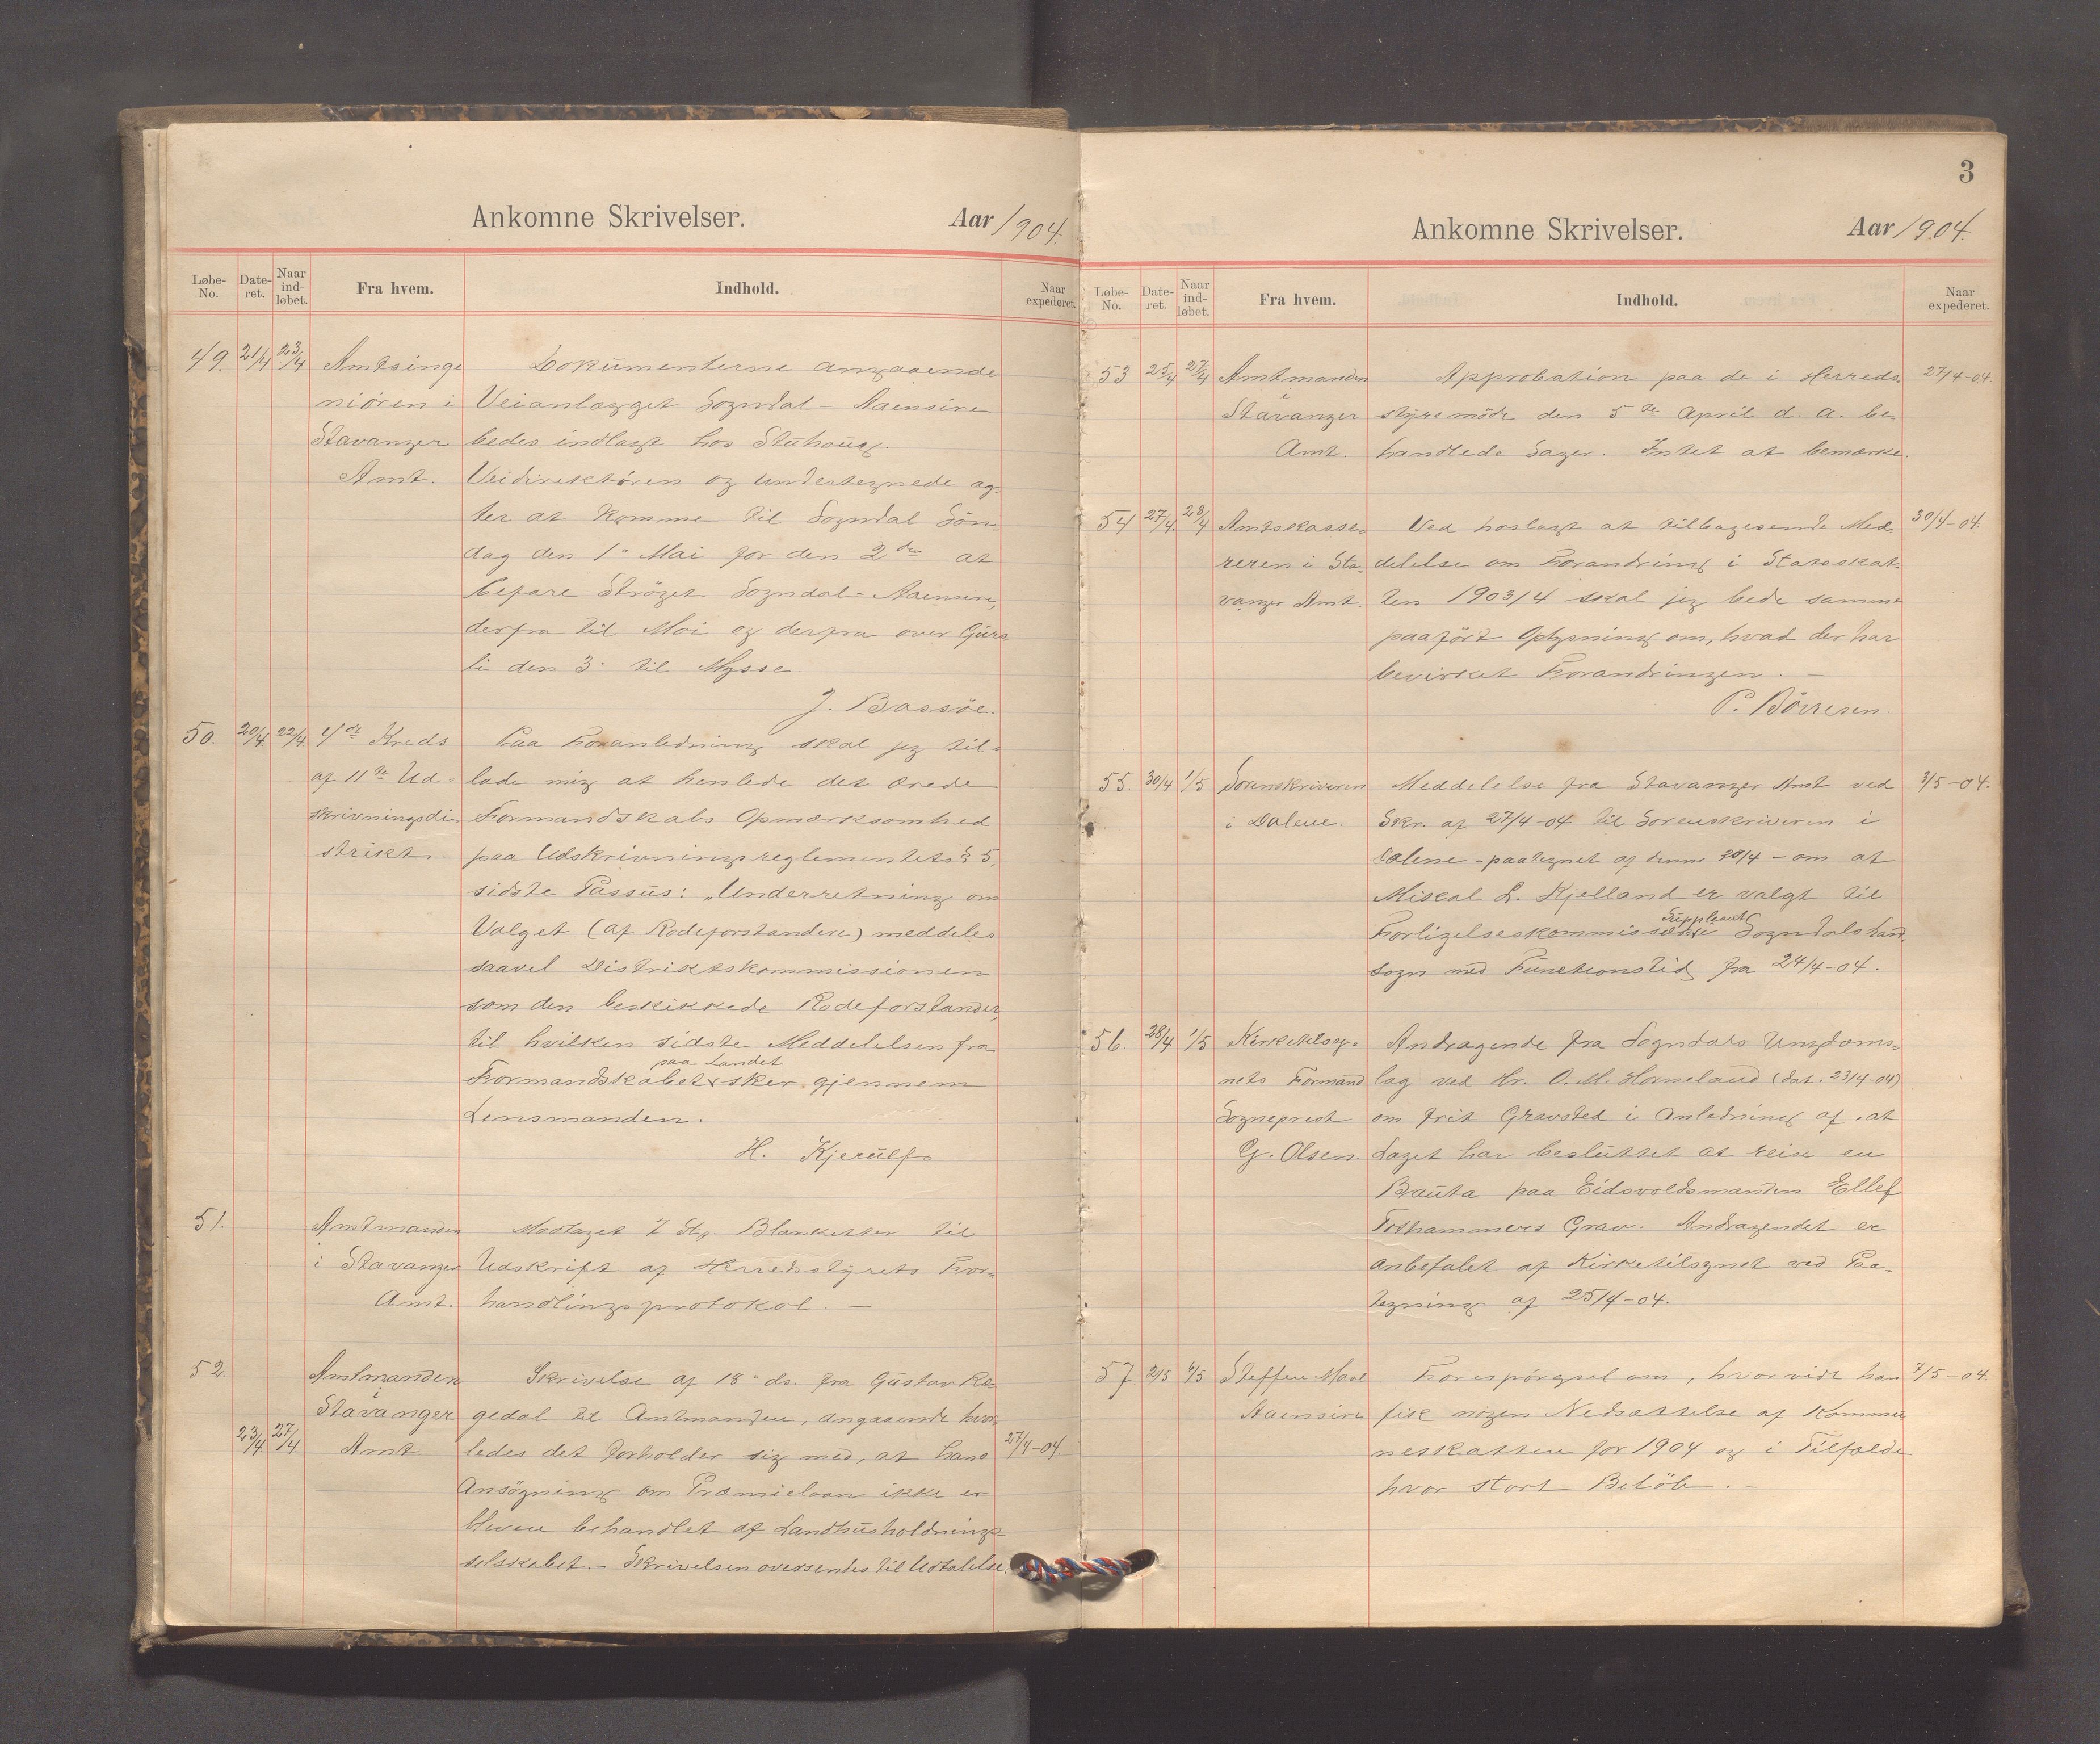 Ankomne Skrivelser.
Aar 1904.
Løbe-No. Dateret. Naar indløbet. Fra hvem. Indhold. Naar expederet.
49. 21/4 23/4 Amtsinge Dokumenterne angaaende
niören i Veianlægget Sogndal - Aaensire
Stavanger bedes indlagt hos Stuhoug.
Amt. Veidirektören og undertegnede ag-
ter at komme til Sogndal Sön-
dag den 1" Mai for den 2den at
befare Ströget Sogndal - Aaensire,
derfra til Moi og derfra over Gurs
li den 3" til Mysse.
J. Bassöe.
50. 20/4 22/4 4de Kreds Paa Foranledning skal jeg til-
af 11te Ud- lade mig at henlede det ærede
skrivningsdi- Formandskabs Opmærksomhed
strikt. paa Udskrivningsreglementets § 5,
sidste Passus: „Underretning om
Valget (af Rodeforstandere) meddeles
saavel Distriktskommissionen
som den beskikkede Rodeforstander,
til hvilken sidste Meddelelsen fra
paa Landet
Formandskabet sker gjennem
Lensmanden.
H. Kjerulf
51. Amtmanden Modtaget 7 St. Blanketter til
i Stavanger Udskrift af Herredsstyrets For-
Amt. handlingsprotokol. —
52. Amtmanden Skrivelse af 18" ds. fra Gustav Ræ-
i
Stavanger gedal til Amtmanden, angaaende hvor-
23/4 27/4 Amt ledes det forholder sig med, at hans 27/4-04.
Ansögning om Præmielaan ikke er
bleven behandlet af Landhusholdnings-
selskabet. - Skrivelsen oversendes til Udtalelse.
3
Ankomne Skrivelser.
Aar 1904.
Løbe-No. Dateret. Naar indløbet. Fra hvem. Indhold. Naar expederet.
53 25/4 27/4 Amtmanden Approbation paa de i Herreds- 27/4-04.
i
Stavanger styremöde den 5te April d. a. be-
Amt. handlede Sager. Intet at bemærke.
54 27/4 28/4 Amtskasse- Ved hoslagt at tilbagesende Med- 30/4-04
reren i Sta- delelse om Forandring i Statsskat-
vanger Amt. ten 1903/4 skal jeg bede samme
paafört Oplysning om, hvad der har
bevirket Forandringen. —
P. Börresen.
55. 30/4 1/5 Sorenskriveren Meddelelse fra Stavanger Amt ved 3/5-04.
i Dalene. Skr. af 27/4-04 til Sorenskriveren i
Dalene - paategnet af denne 30/4 - om at
Mikal L. Kjelland er valgt til
Suppleant
Forligelseskommissær i Sogndals Land-
sogn med Funktionstid fra 24/4-04.
56 28/4 1/5 Kirketilsy- Andragende fra Sogndals Ungdoms-
nets Formand lag ved Hr. O. M. Horneland (dat. 23/4-04)
Sogneprest om frit Gravsted i Anledning af, at
G. Olsen. Laget har besluttet at reise en
Bauta paa Eidsvoldsmanden Ellef
Tothammers Grav. Andragendet er
anbefalet af Kirketilsynet ved Paa-
tegning af 25/4-04.
57 2/5 4/5 Steffen Moal Forespörgsel om, hvorvidt han 7/5-04.
Aaensire fik nogen Nedsættelse af Kommu
neskatten for 1904 og i Tilfælde
hvor stort Belöb. —